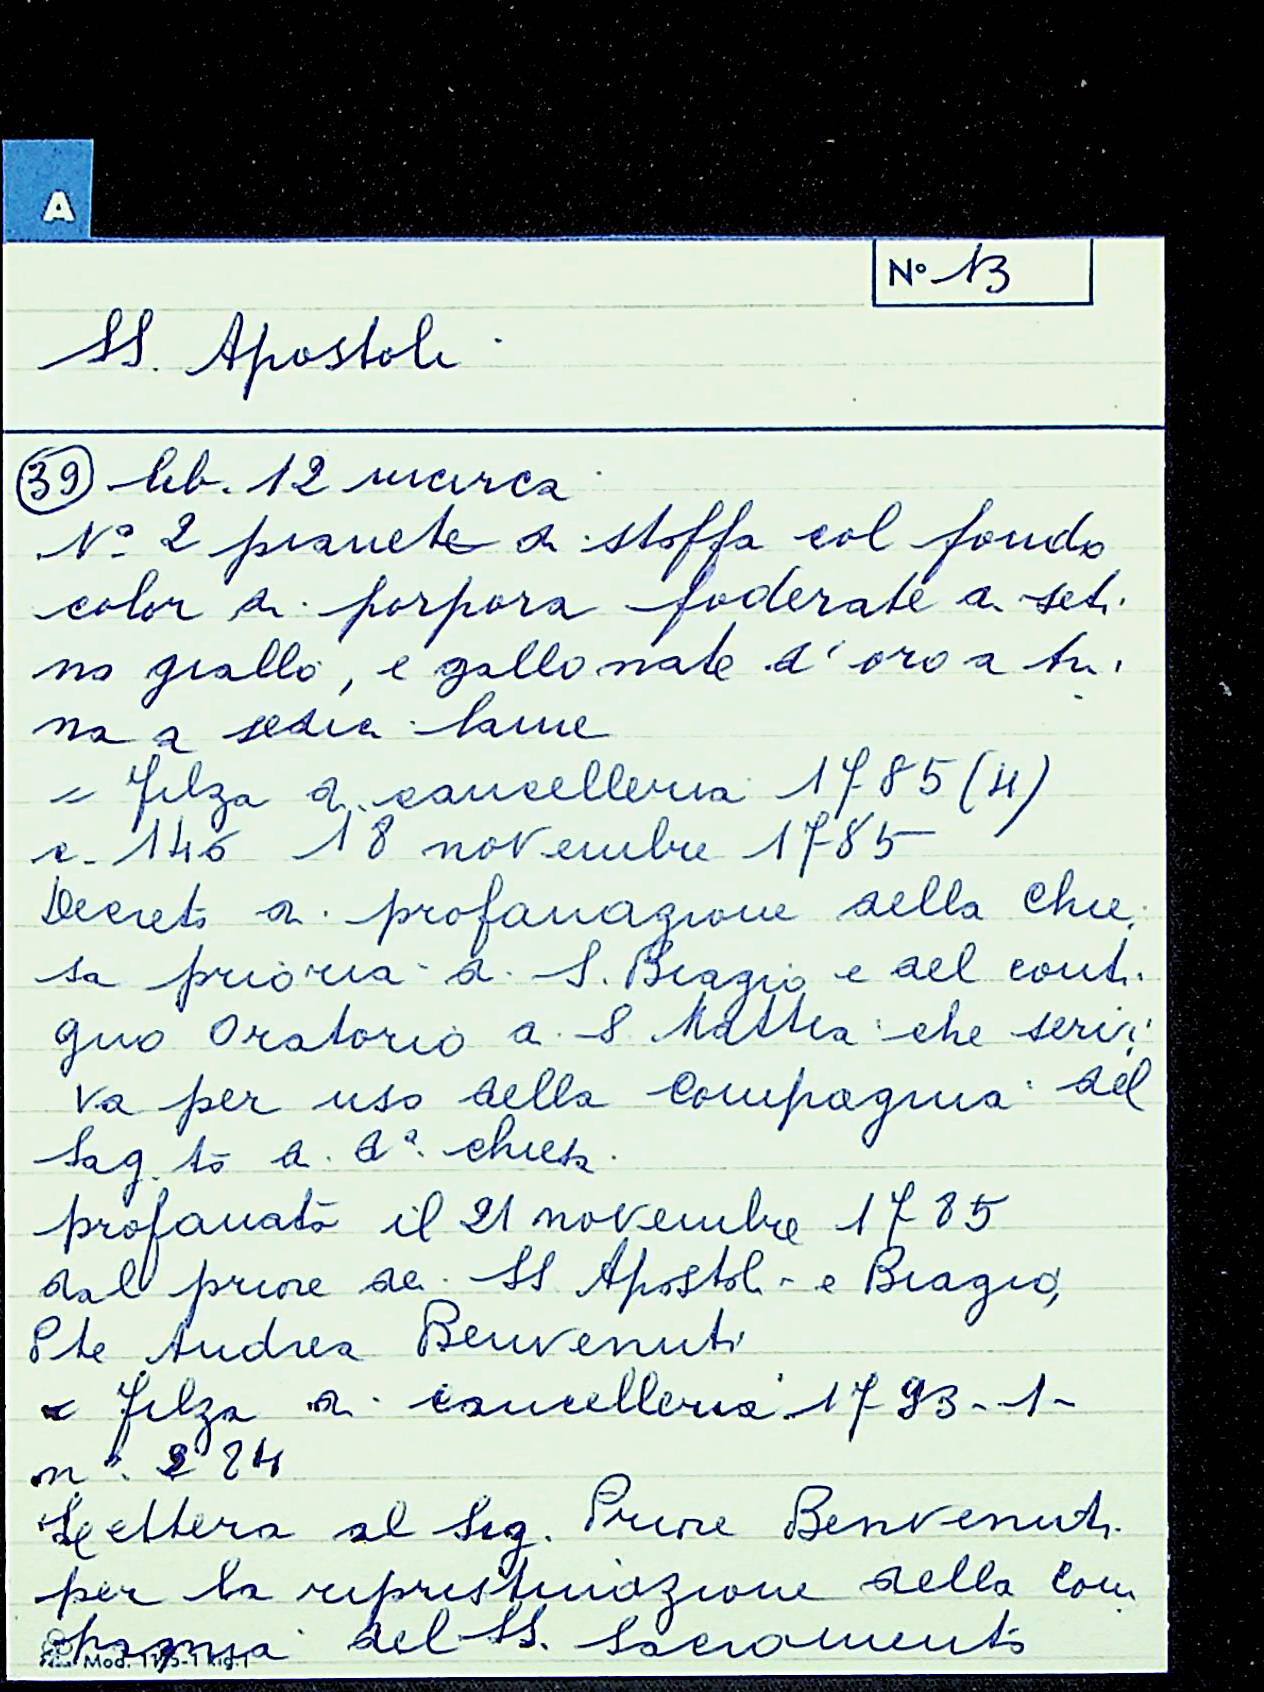 A
N° 13
SS. Apostoli
39 lib. 12 circa
N° 2 pianete di stoffa col fondo
color di porpora foderate di seti
no giallo, e gallonate d'oro a
na a lame
= Filza di cancelleria 1785 (4)
c. 146 18 novembre 1785
Decreto di profanazione della chie
sa prioria di S. Biagio e del conti
guo Oratorio di S Mattia che servi
va per uso della Compagnia del
Sag.to di d.a chiesa
profanato il 21 novembre 1785
dal priore dei SS Apostoli e Biagio,
Pte Andrea Benvenuti
= Filza di cancelleria 1793-1-
n°. 224
Lettera al Sig. Priore Benvenuti
per la ripristinazione della Com
pagnia del SS. Sacramento